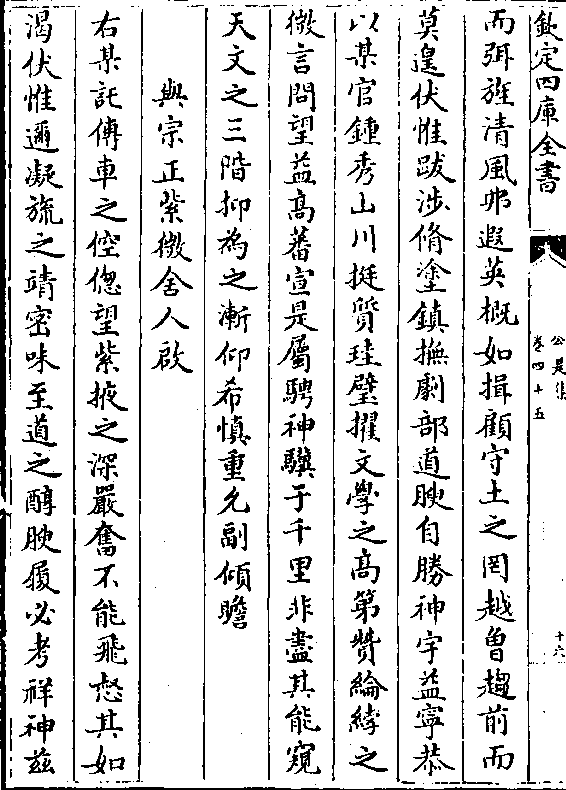 欽定四庫全書
公是集
卷四十五
十六
而弭旌清風毋遐英概如揖顧守土之罔越曾趨前而
莫遑伏惟跋涉脩塗鎮撫劇部道腴自勝神宇益寧恭
以某官鍾秀山川挺質珪璧擢文學之高第贊綸綍之
微言問望益高蕃宣是屬騁神驥于千里非盡其能窺
天文之三階抑為之漸仰希慎重允副傾瞻
與宗正紫微舍人啟
右某託傳車之倥傯望紫掖之深嚴奮不能飛惄其如
渴伏惟邇凝旒之靖密味至道之醇腴履必考祥神茲